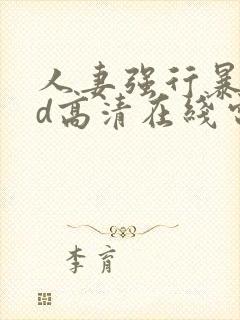 人妻强行暴
d高清在线
李育